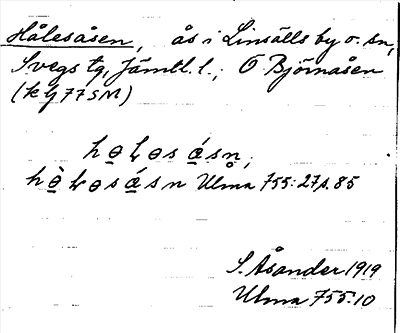 Hålesåsen, ås i Linsälls by o. sn,
Svegs tg, Jämtl. l.; Ö Björnåsen
(k G 77 SM)
Ulma 755:27 s. 85
S. Åsander 1919
Ulma 755:10